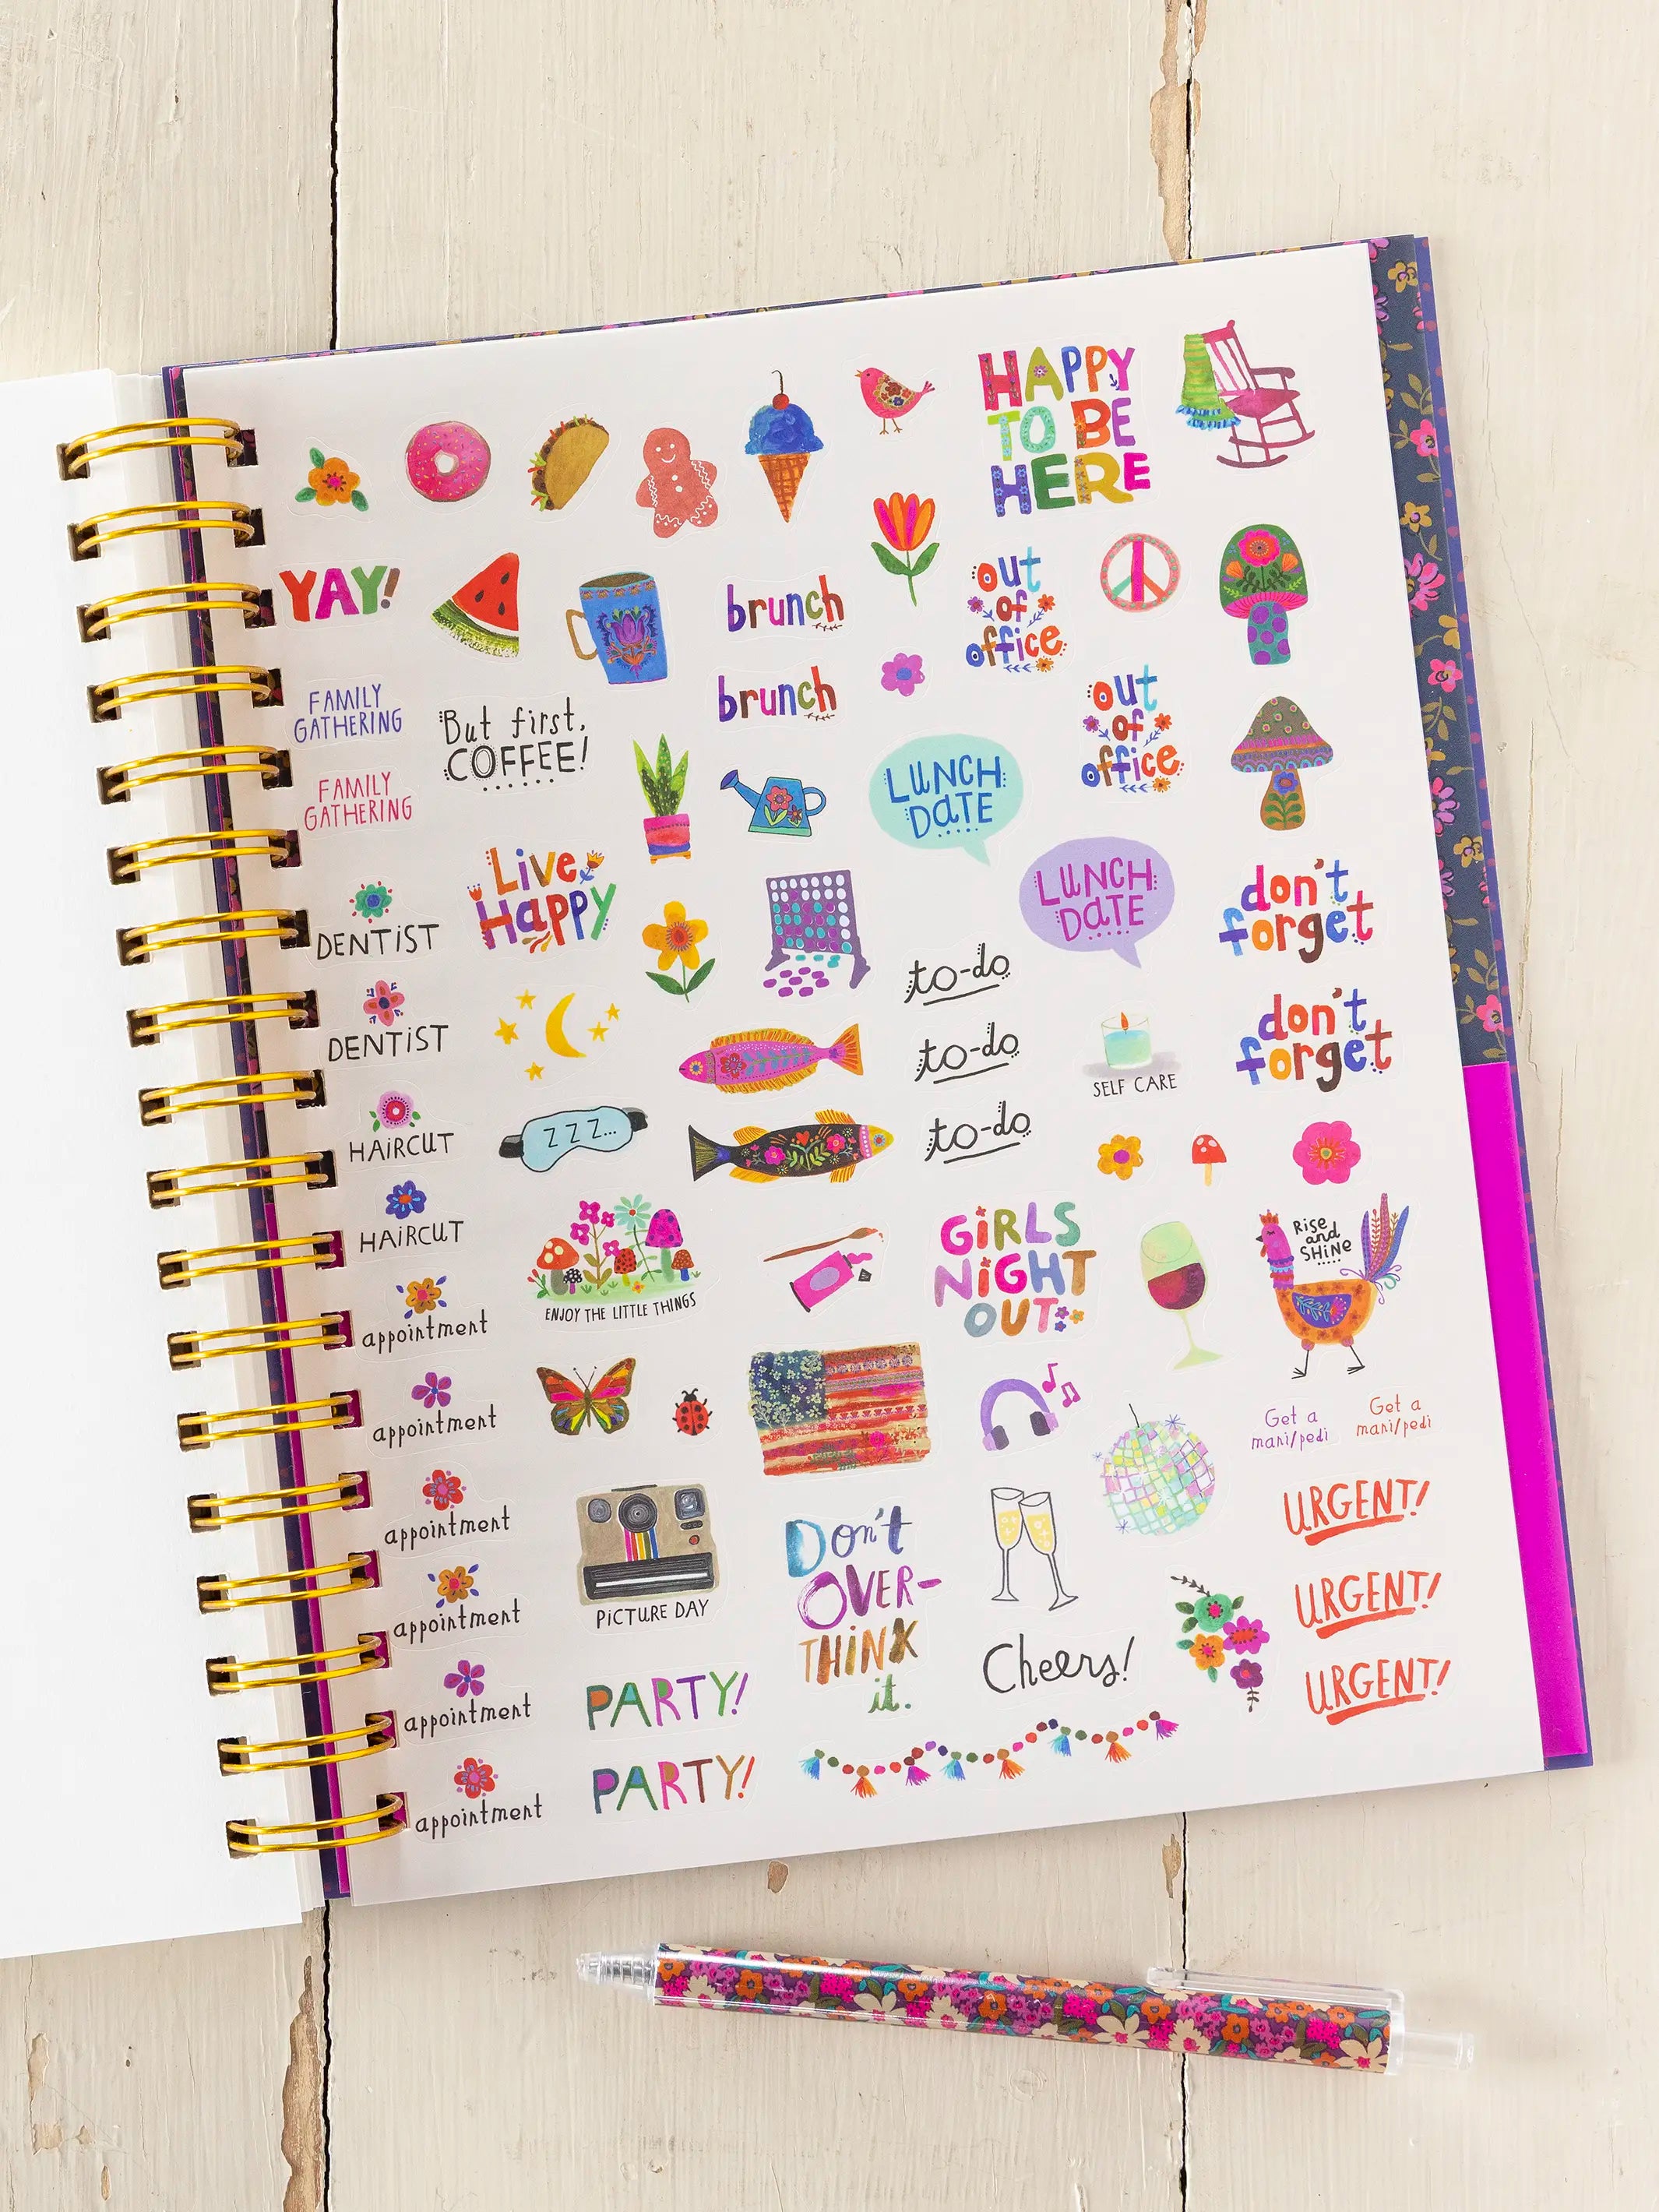 HAPPY
TO BE
HERE
YAY!
brunch
brunch
out
of
office
out
of
office
FAMILY
GATHERING
FAMILY
GATHERING
But first,
COFFEE!
LUNCH
DATE
LUNCH
DATE
Live
Happy
don't
forget
don't
forget
DENTIST
DENTIST
to-do
to-do
to-do
SELF CARE
HAIRCUT
HAIRCUT
Z Z Z...
ENJOY THE LITTLE THINGS
GIRLS
NIGHT
OUT
Rise
and
SHINE
appointment
appointment
appointment
appointment
appointment
appointment
Get a
mani/pedi
Get a
mani/pedi
PICTURE DAY
Don't
OVER-
THINK
it.
Cheers!
URGENT!
URGENT!
URGENT!
PARTY!
PARTY!